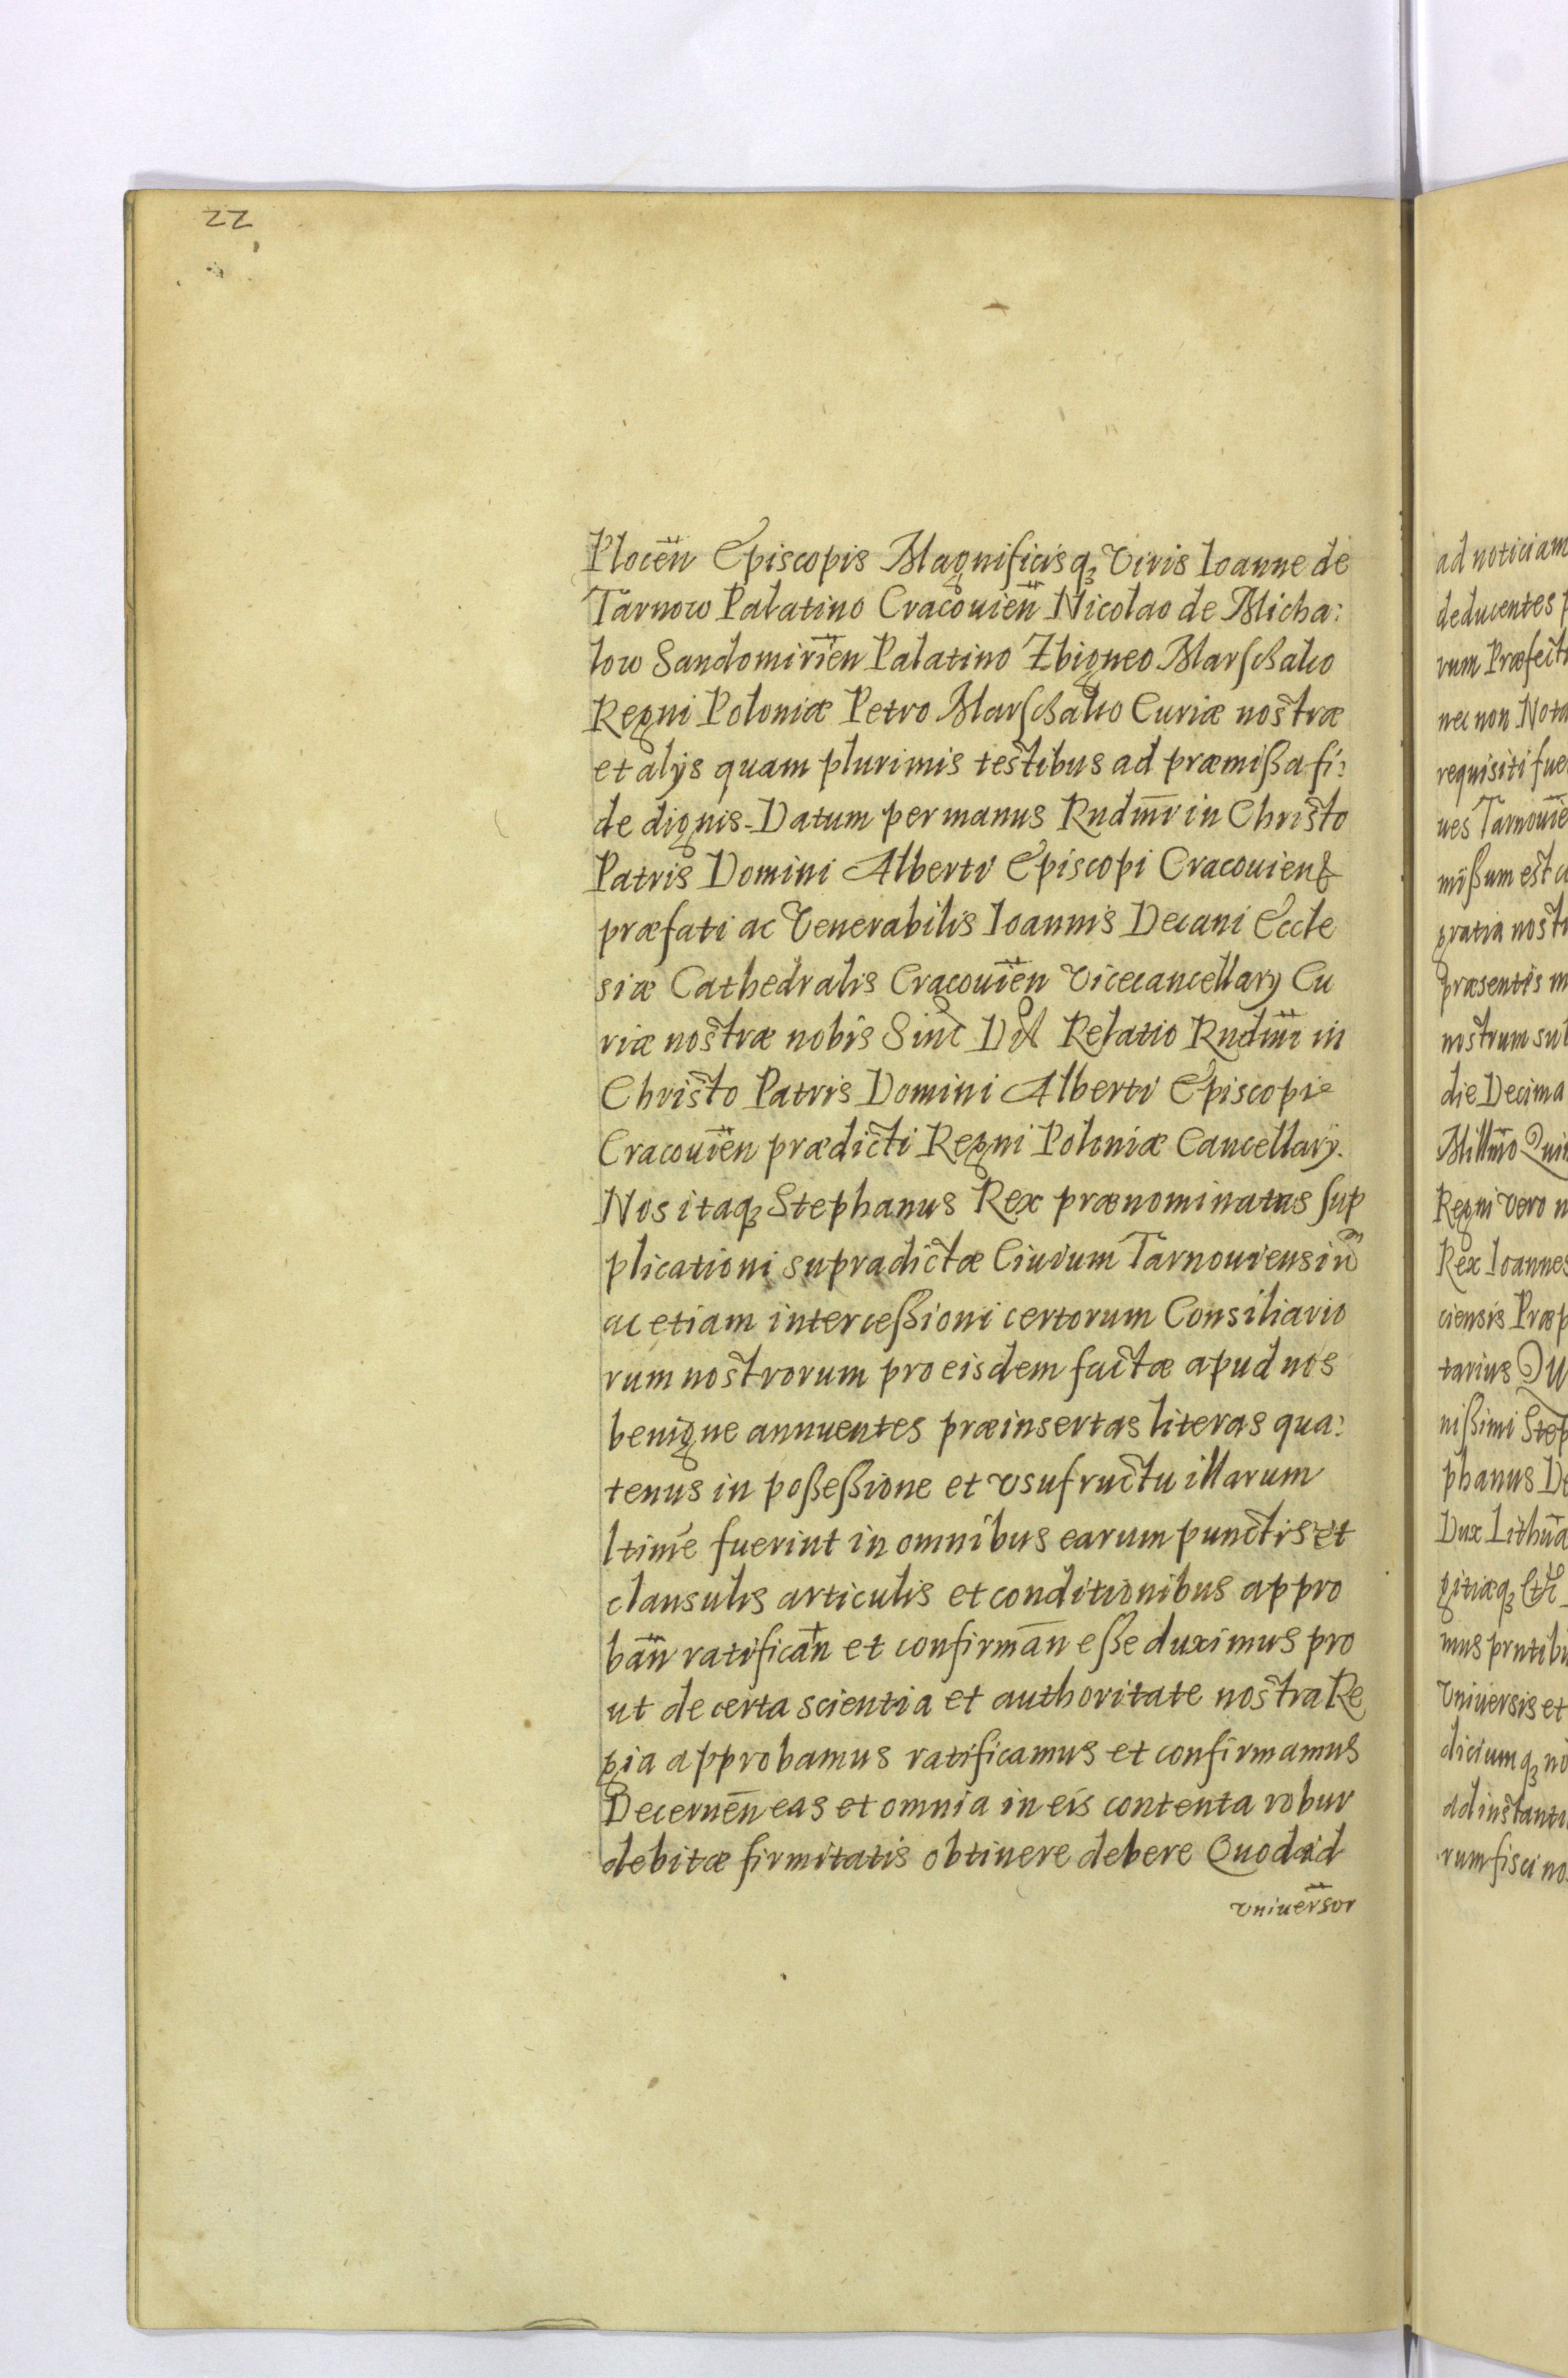 22
Plocen̄ Episcopis Magnificisq₃ Viris Ioanne de
Tarnow Palatino Cracouien̄ Nicolao de Micha:
low Sandomirien̄ Palatino Zbigneo Marschalco
Regni Poloniæ Petro Marschalco Curiæ nostræ
et alijs quam plurimis testibus ad præmißa fi:
de dignis. Datum per manus Rndm̄i in Christo
Patris Domini Alberti Episcopi Cracouien̄
præfati ac Venerabilis Ioannis Decani Eccle
siæ Cathedralis Cracouien̄ Vicecancellarij Cu
riæ nostræ nobis Sinc Dil Relatio Rndm̄i in
Christo Patris Domini Alberti Episcopi
Cracouien̄ prædicti Regni Poloniæ Cancellarij.
Nos itaq₃ Stephanus Rex prænominatus sup
plicationi supradictæ Ciuium Tarnouiensium
ac etiam interceßioni certorum Consiliario
rum nostrorum pro eisdem factæ apud nos
benigne annuentes præinsertas literas qua:
tenus in poßeßione et vsufructu illarum
ltimē fuerint in omnibus earum punctis et
clausulis articulis et conditionibus appro
ban̄ ratifican̄ et confirman̄ eße duximus pro
ut de certa scientia et authoritate nostra Re
gia approbamus ratificamus et confirmamus
Decernen̄ eas et omnia in eis contenta robur
debitæ firmitatis obtinere debere Quod ad
vniuersor̄
ad noticiam
deducentes
rum Præfect
nec non Nota
requisiti fue
ues Tarnouie
mißum est
gratia nost
præsentis m
nostrum sub
die Decima
Millm̄o Qui
Regni vero n
Rex Ioannes
ciensis Præp
tarius
nißimi Step
phanus De
Dux Lithua
gitiæq₃
mus pntibu
Vniuersis et
diciumq₃ no
ad instanti
rum fisci no